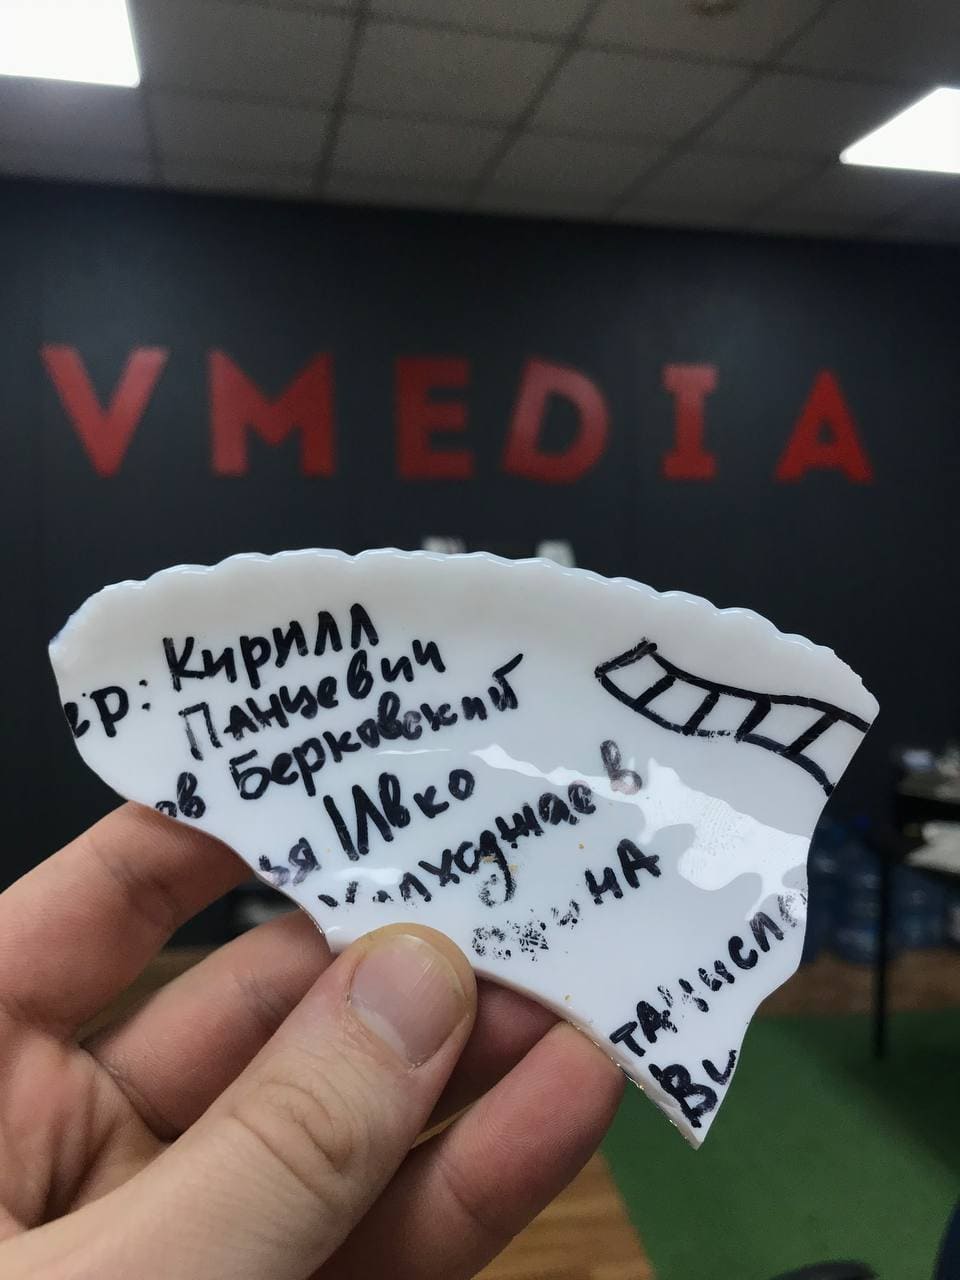 VMEDIA
ер: Кирилл
Панцевич
ов Берковский
ья Ивко
ходжаев
на
Вы